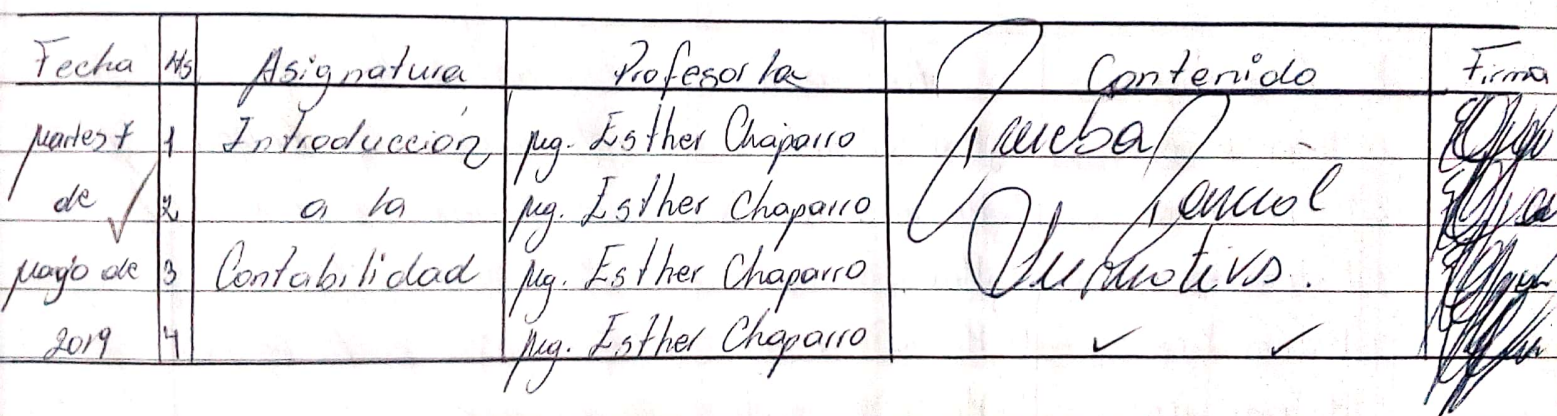 Fecha Hs Asignatura Profesor/a Contenido Firma
Martes 7 1 Introducción Mg. Esther Chaparro Prueba
de 2 a la Mg. Esther Chaparro Parcial
Mayo de 3 Contabilidad Mg. Esther Chaparro
2019 4 Mg. Esther Chaparro ✓ ✓